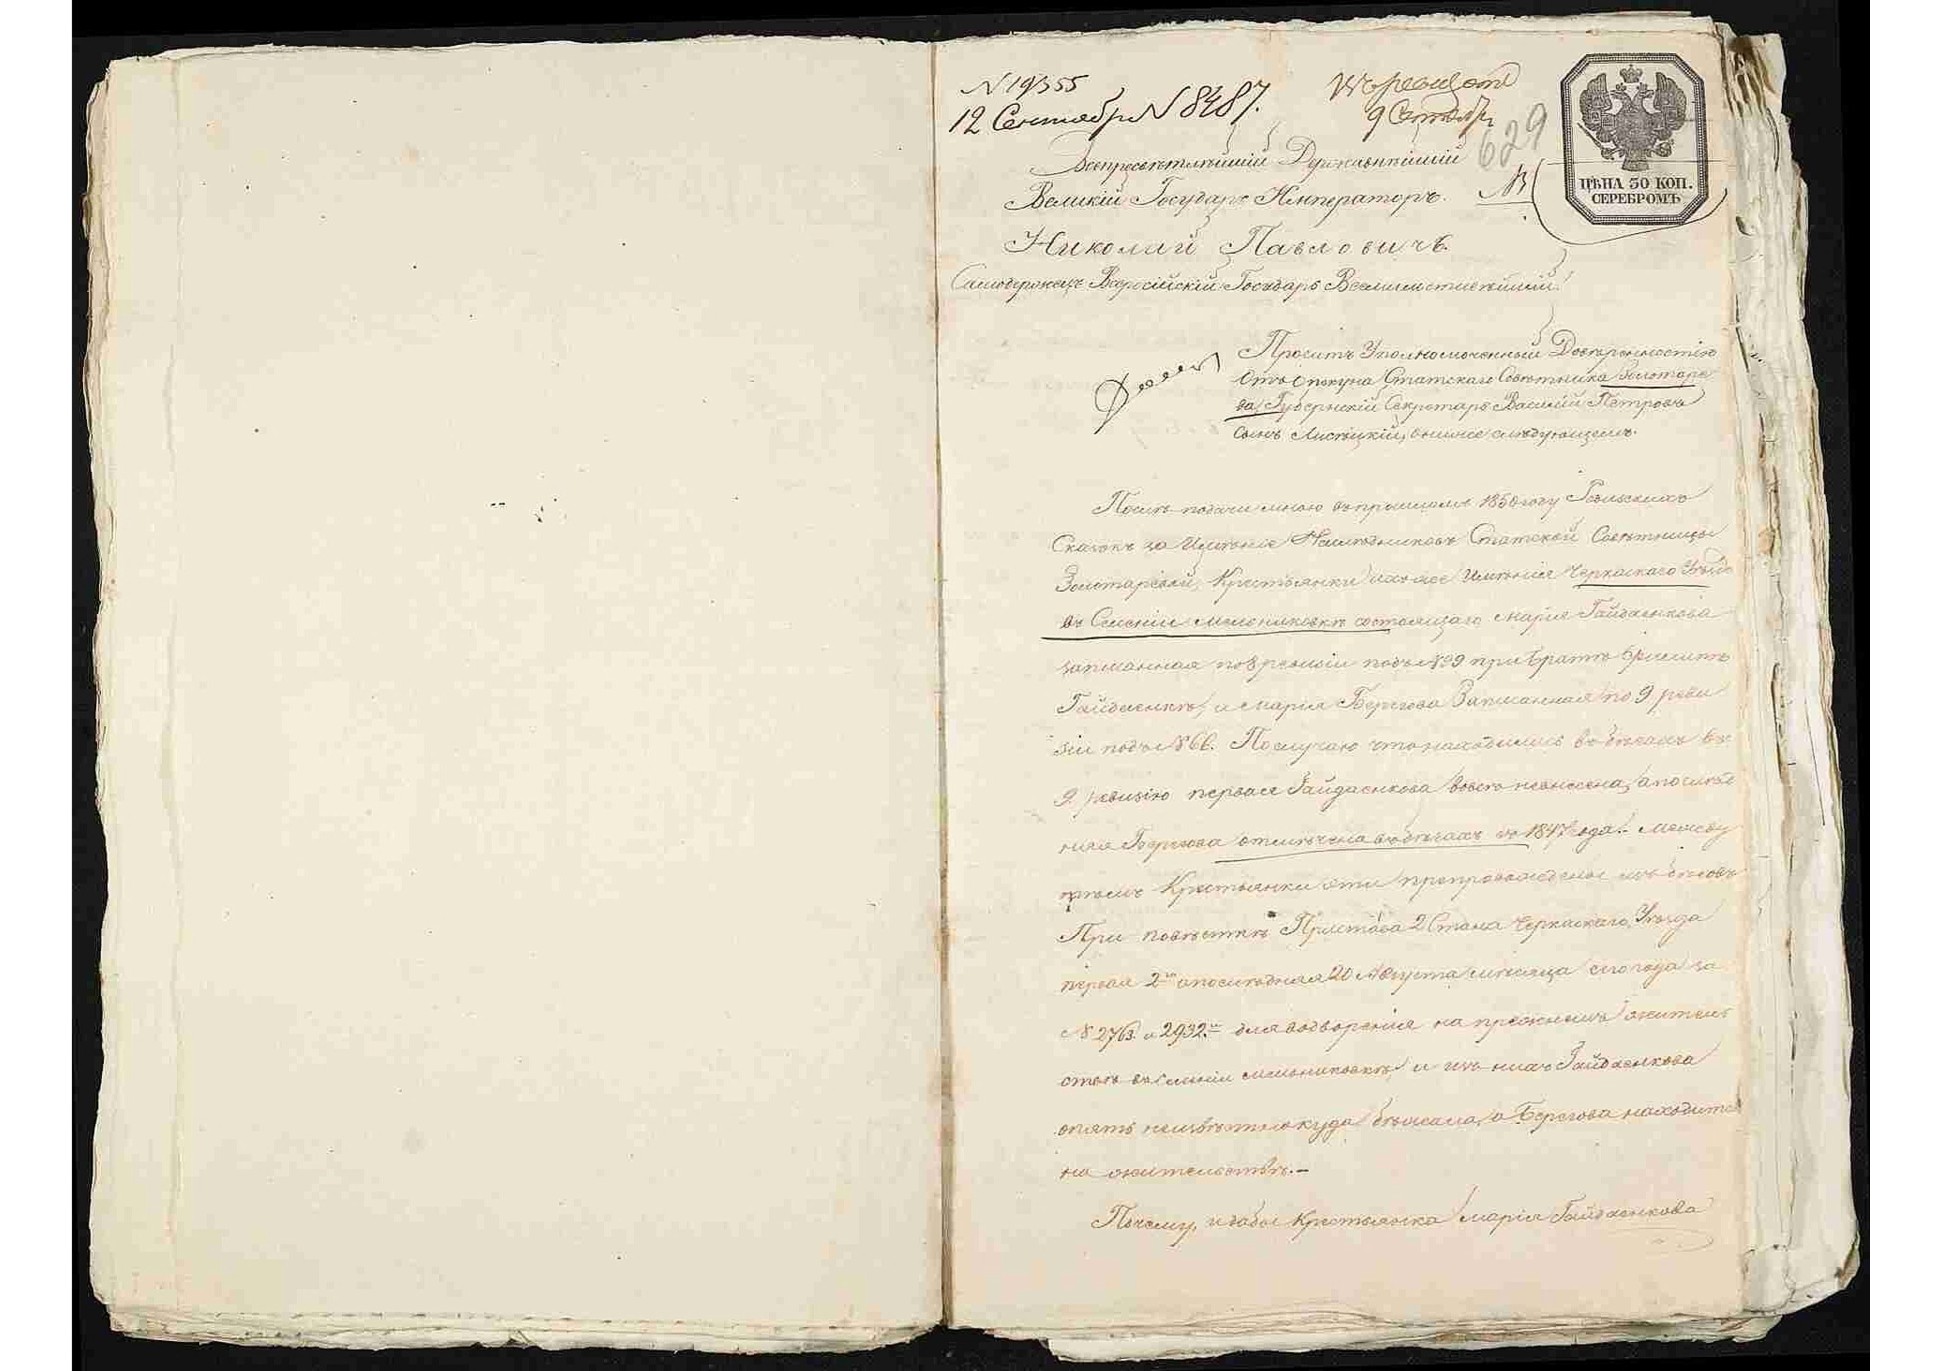 N 19355
12 Сентября N 8487.
9 Сентября
629
ЦѢНА 30 КОП.
СЕРЕБРОМЪ
Всепресвѣтлѣйшій Державнѣйшій
Великій Государь Императоръ.
Николай Павловичъ.
Самодержецъ Всеросійскій Государь Всемилостивѣйшій!
Проситъ Уполномоченный Довѣренностію
Отъ Опекуна Статскаго Совѣтника Золотаре
ва, Губернскій Секретарь Василій Петровъ
Сынъ Лисѣцкій, о ниже слѣдующемъ.
Послѣ подачи мною въ прошломъ 1850 году Ревизскихъ
Сказокъ за Имѣніе Наслѣдниковъ Статской Совѣтницы
Золотаревой, Крестьянки имѣнія Черкаскаго Уѣзда
въ Селеніи Мельниковкѣ состоящаго Марія Гайдаенкова
записанная по 8 ревизіи подъ №39 при братѣ
Гайдаенкѣ, и Марія Берегова Записанная по 9 реви
зіи подъ №66. По случаю что находились въ бѣгахъ въ
9 ревизію первая Гайдаенкова вовсе невнесена, а послѣд
няя Берегова отмѣчена въ бѣгахъ съ 1847 года. Между
тѣмъ Крестьянки эти препровождены изъ бѣговъ
При повѣсткѣ Пристава 2 Стана Черкаскаго Уѣзда
первая 2го а послѣдняя 20 Августа мѣсяца сего года за
№ 2763 и 2932м для водворенія на прежнемъ жительс
ствѣ въ Селеніи Мельниковкѣ, и изъ нихъ Гайдаенкова
опять неизвѣстно куда бѣжала, а Берегова находится
на жительствѣ.—
Почему, и дабы Крестьянка Марія Гайдаенкова